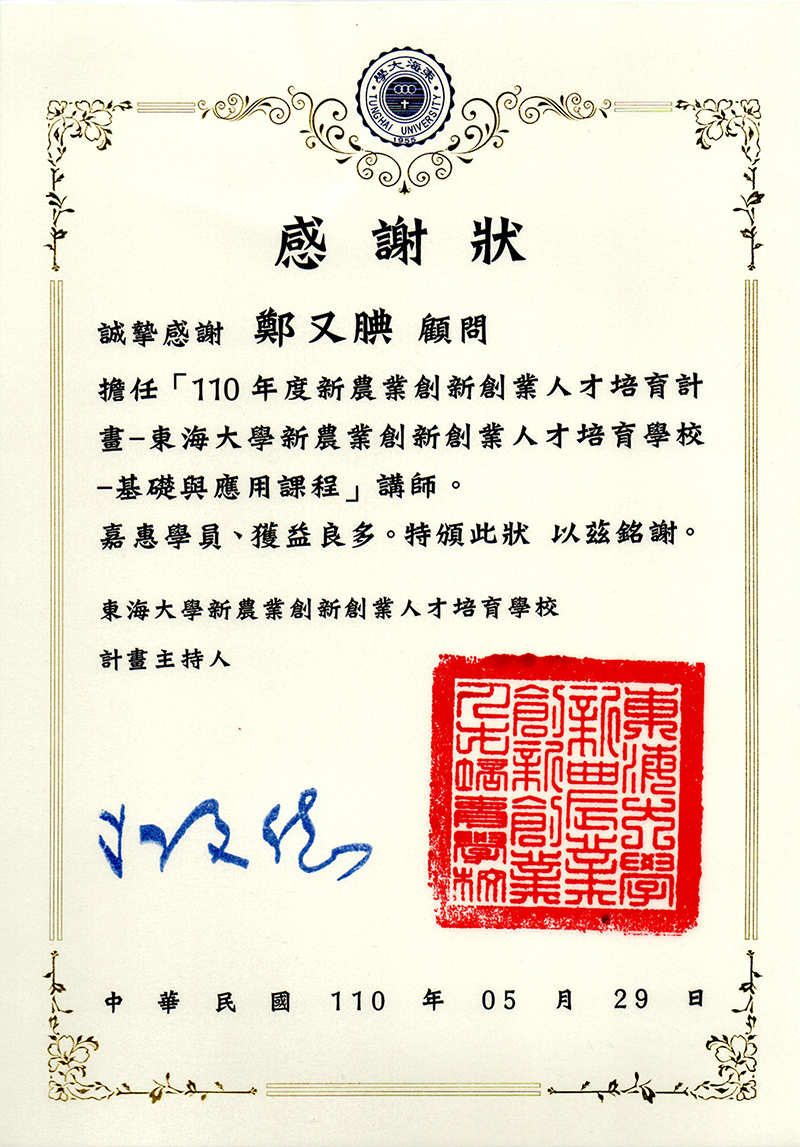 東海大學
TUNGHAI UNIVERSITY
1955
感謝狀
誠摯感謝 鄭又腆 顧問
擔任「110年度新農業創新創業人才培育計
畫-東海大學新農業創新創業人才培育學校
-基礎與應用課程」講師。
嘉惠學員、獲益良多。特頒此狀 以茲銘謝。
東海大學新農業創新創業人才培育學校
計畫主持人
東海大學
新農業
創新創業
人才培育學校
中華民國110年05月29日